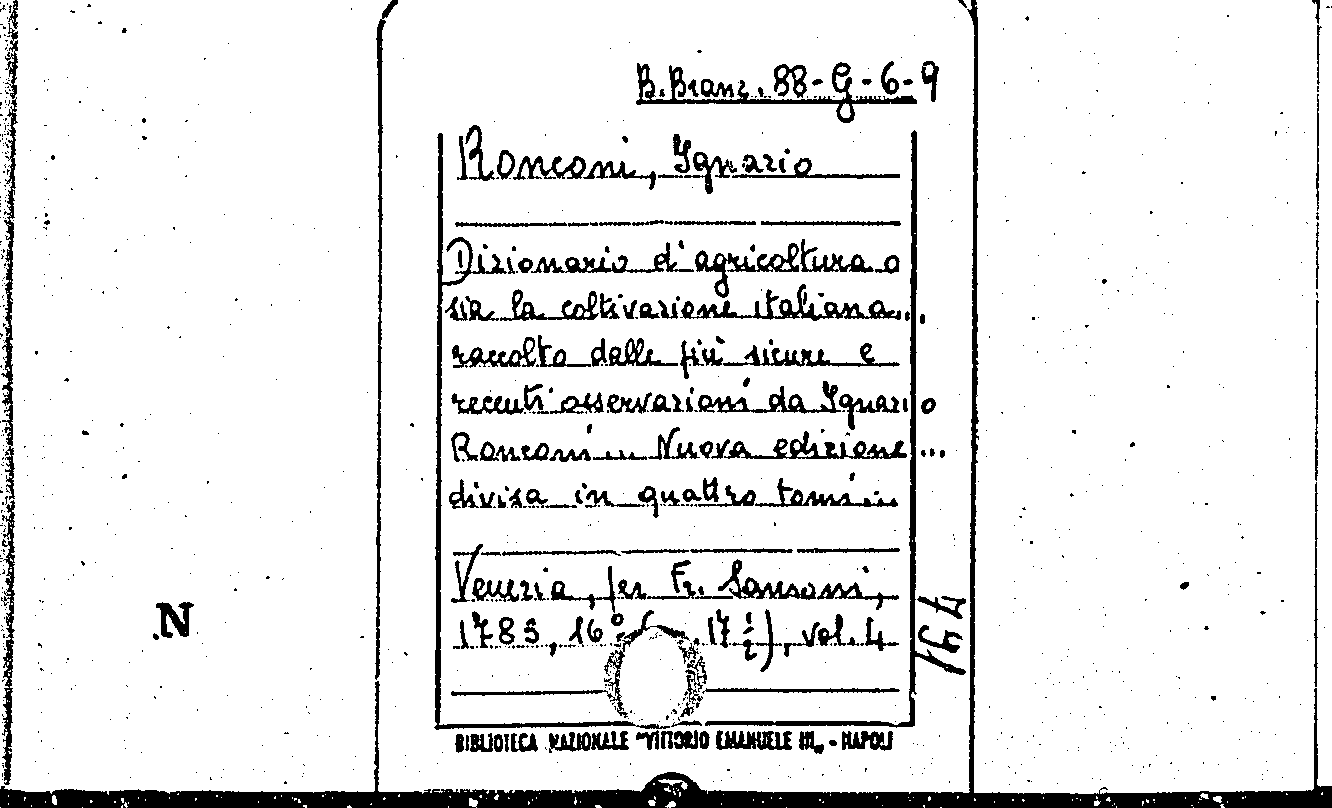 B. Branc. 88-G-6-9
Ronconi, Ignazio
Dizionario d'agricoltura o
sia la coltivazione italiana...
raccolto dalle più sicure e
recenti osservazioni da Ignazio
Ronconi... Nuova edizione...
divisa in quattro tomi...
Venezia, per Fr. Sansoni,
1783, 16° ( 17 ½), vol. 4
N
BIBLIOTECA NAZIONALE "VITTORIO EMANUELE III" - NAPOLI